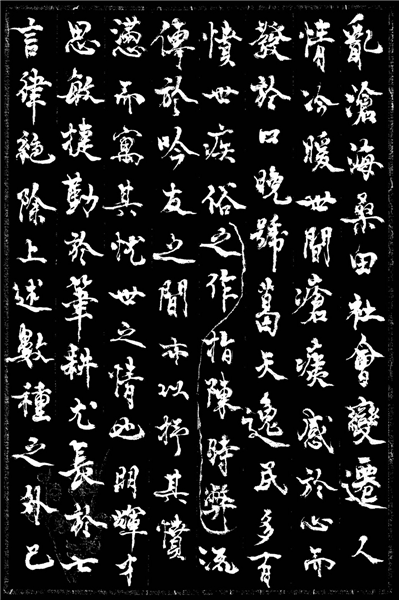 亂滄海桑田社會變遷人
情冷暖世間瘡痍感於心而
發於口晚號葛天逸民多有
憤世疾俗之作指陳時弊流
傳於吟友之間亦以抒其憤
懣而寓其悅世之情也明輝才
思敏捷勤於筆耕尤長於七
言律絕除上述數種之外已